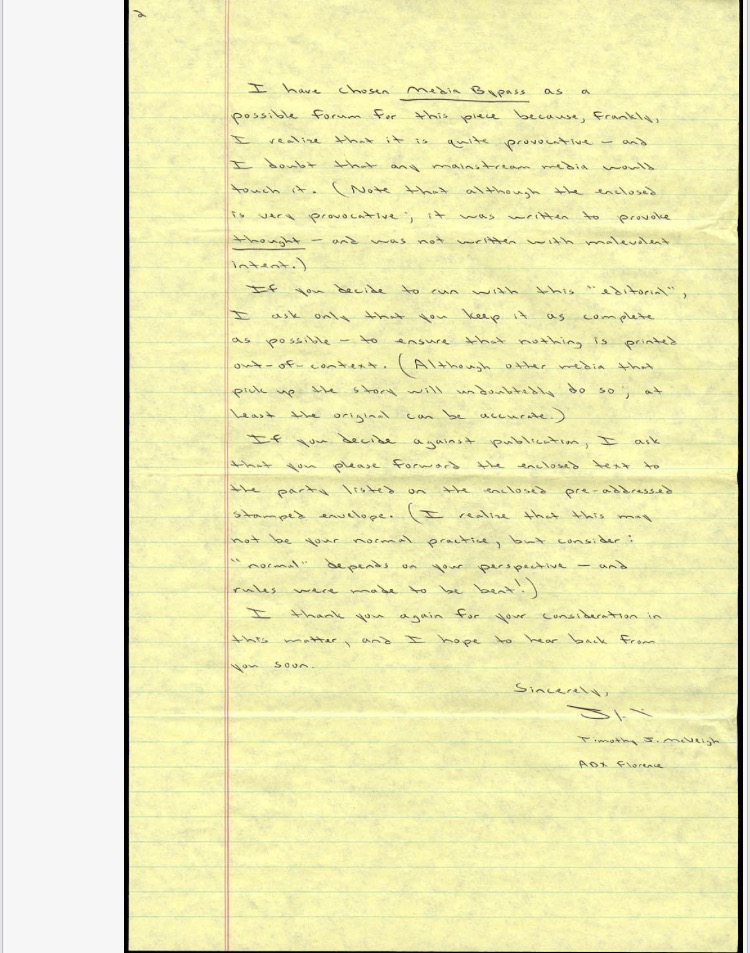 2
I have chosen Media Bypass as a
possible forum for this piece because, frankly,
I realize that it is quite provocative - and
I doubt that any mainstream media would
touch it. (Note that although the enclosed
is very provocative; it was written to provoke
thought - and was not written with malevolent
intent.)
If you decide to run with this "editorial",
I ask only that you keep it as complete
as possible - to ensure that nothing is printed
out-of-context. (Although other media that
pick up the story will undoubtedly do so; at
least the original can be accurate.)
If you decide against publication, I ask
that you please forward the enclosed text to
the party listed on the enclosed pre-addressed
stamped envelope. (I realize that this may
not be your normal practice, but consider:
"normal" depends on your perspective - and
rules were made to be bent!)
I thank you again for your consideration in
this matter, and I hope to hear back from
you soon.
Sincerely,
Timothy J. McVeigh
ADX Florence